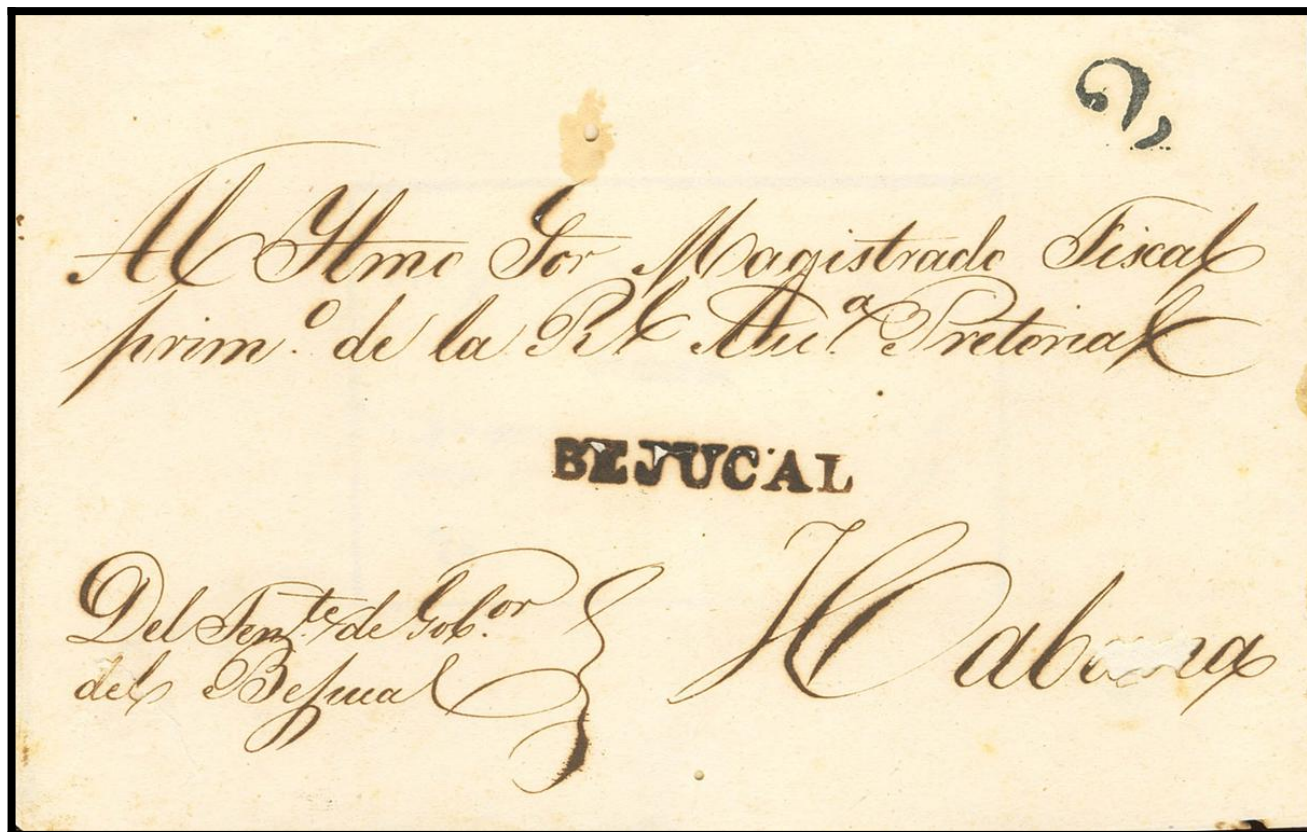 Al Yltmo Sor Magistrado Fiscal
prim.º de la Rl Au.ª Pretorial
BEJUCAL
Del Ten.te de Gob.or
del Bejucal
Habana